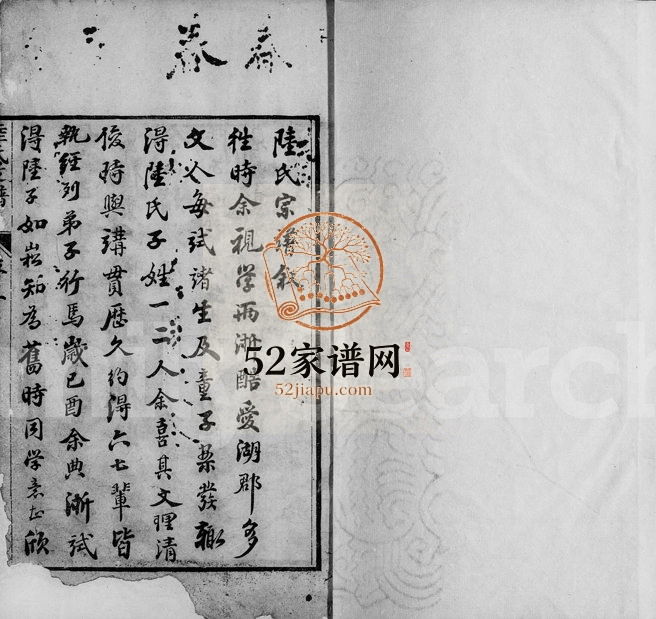 陸氏宗譜叙
往時余視学两淛酷愛湖郡多
文人每试諸生及童子案發輙
得陸氏子姓一二人余喜其文理清
俊時與講貫歷久約得六七輩皆
執經列弟子行焉歲己酉余典浙試
得陸子如崧知為舊時同学
52家谱网
52jiapu.com